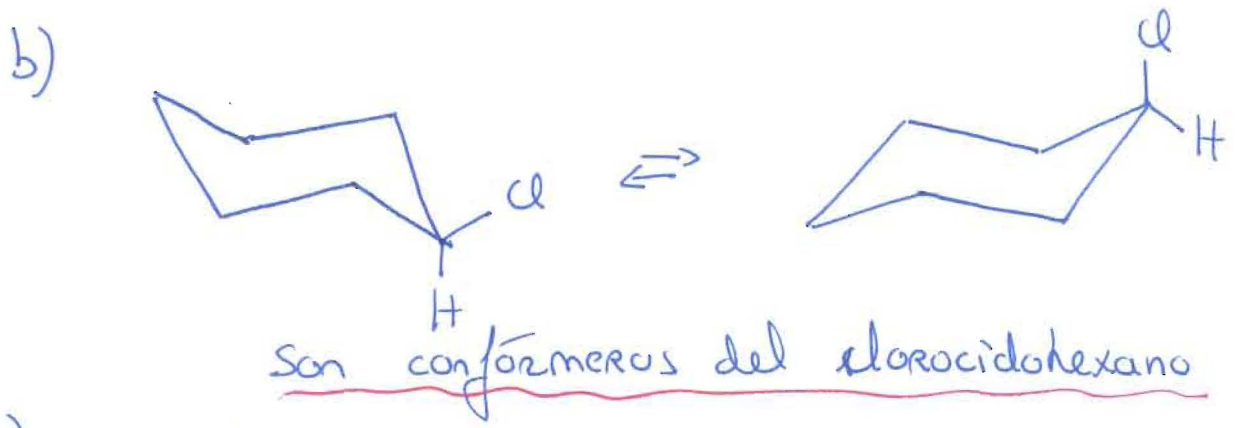 b)
Cl
Cl
H
H
Son confórmeros del clorociclohexano